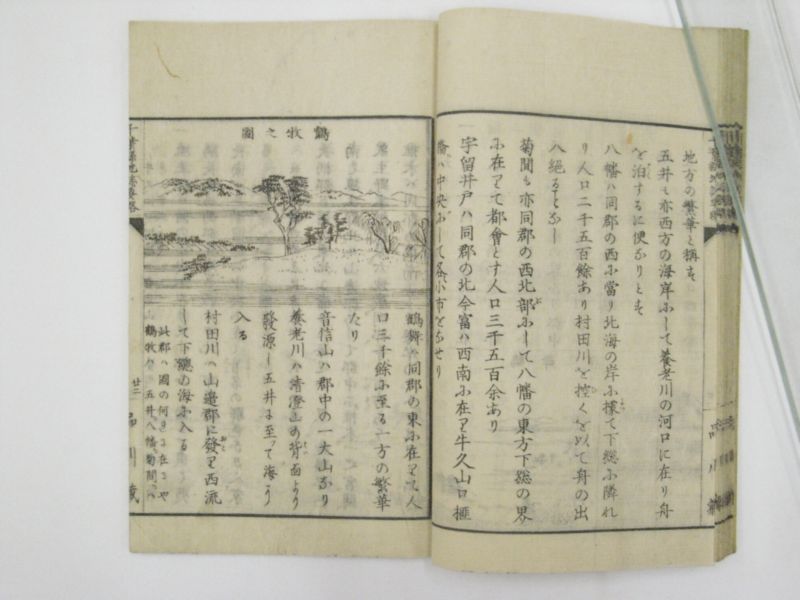 地方の繁華と稱す
五井も亦西方の海岸ふして養老川の河口に在り舟
を泊するに便なりとす
八幡ハ同郡の西ふ當り北海の岸ふ擴て下総ふ隣れ
り人口二千五百餘あり村田川を控くを以て舟の出
入絶るとなし
菊間も亦同郡の西北部ふして八幡の東方下総の界
ふ在りて都會とす人口三千五百余あり
宇留井戸ハ同郡の北今富ハ西南ふ在り牛久山口椎
橋ハ中央ふして各小市をなせり
鶴牧之圖
鶴舞ハ同郡の東ふ在りて人
口三千餘ふ至る一方の繁華
たり
音信山ハ郡中の一大山なり
養老川ハ清澄山の背面より
發源し五井ふ至って海に
入る
村田川ハ山邉郡に發り西流
して下總の海ふ入る
此郡ハ國の何方に在るや
鶴牧ハ 五井八幡菊間ハ
廿二